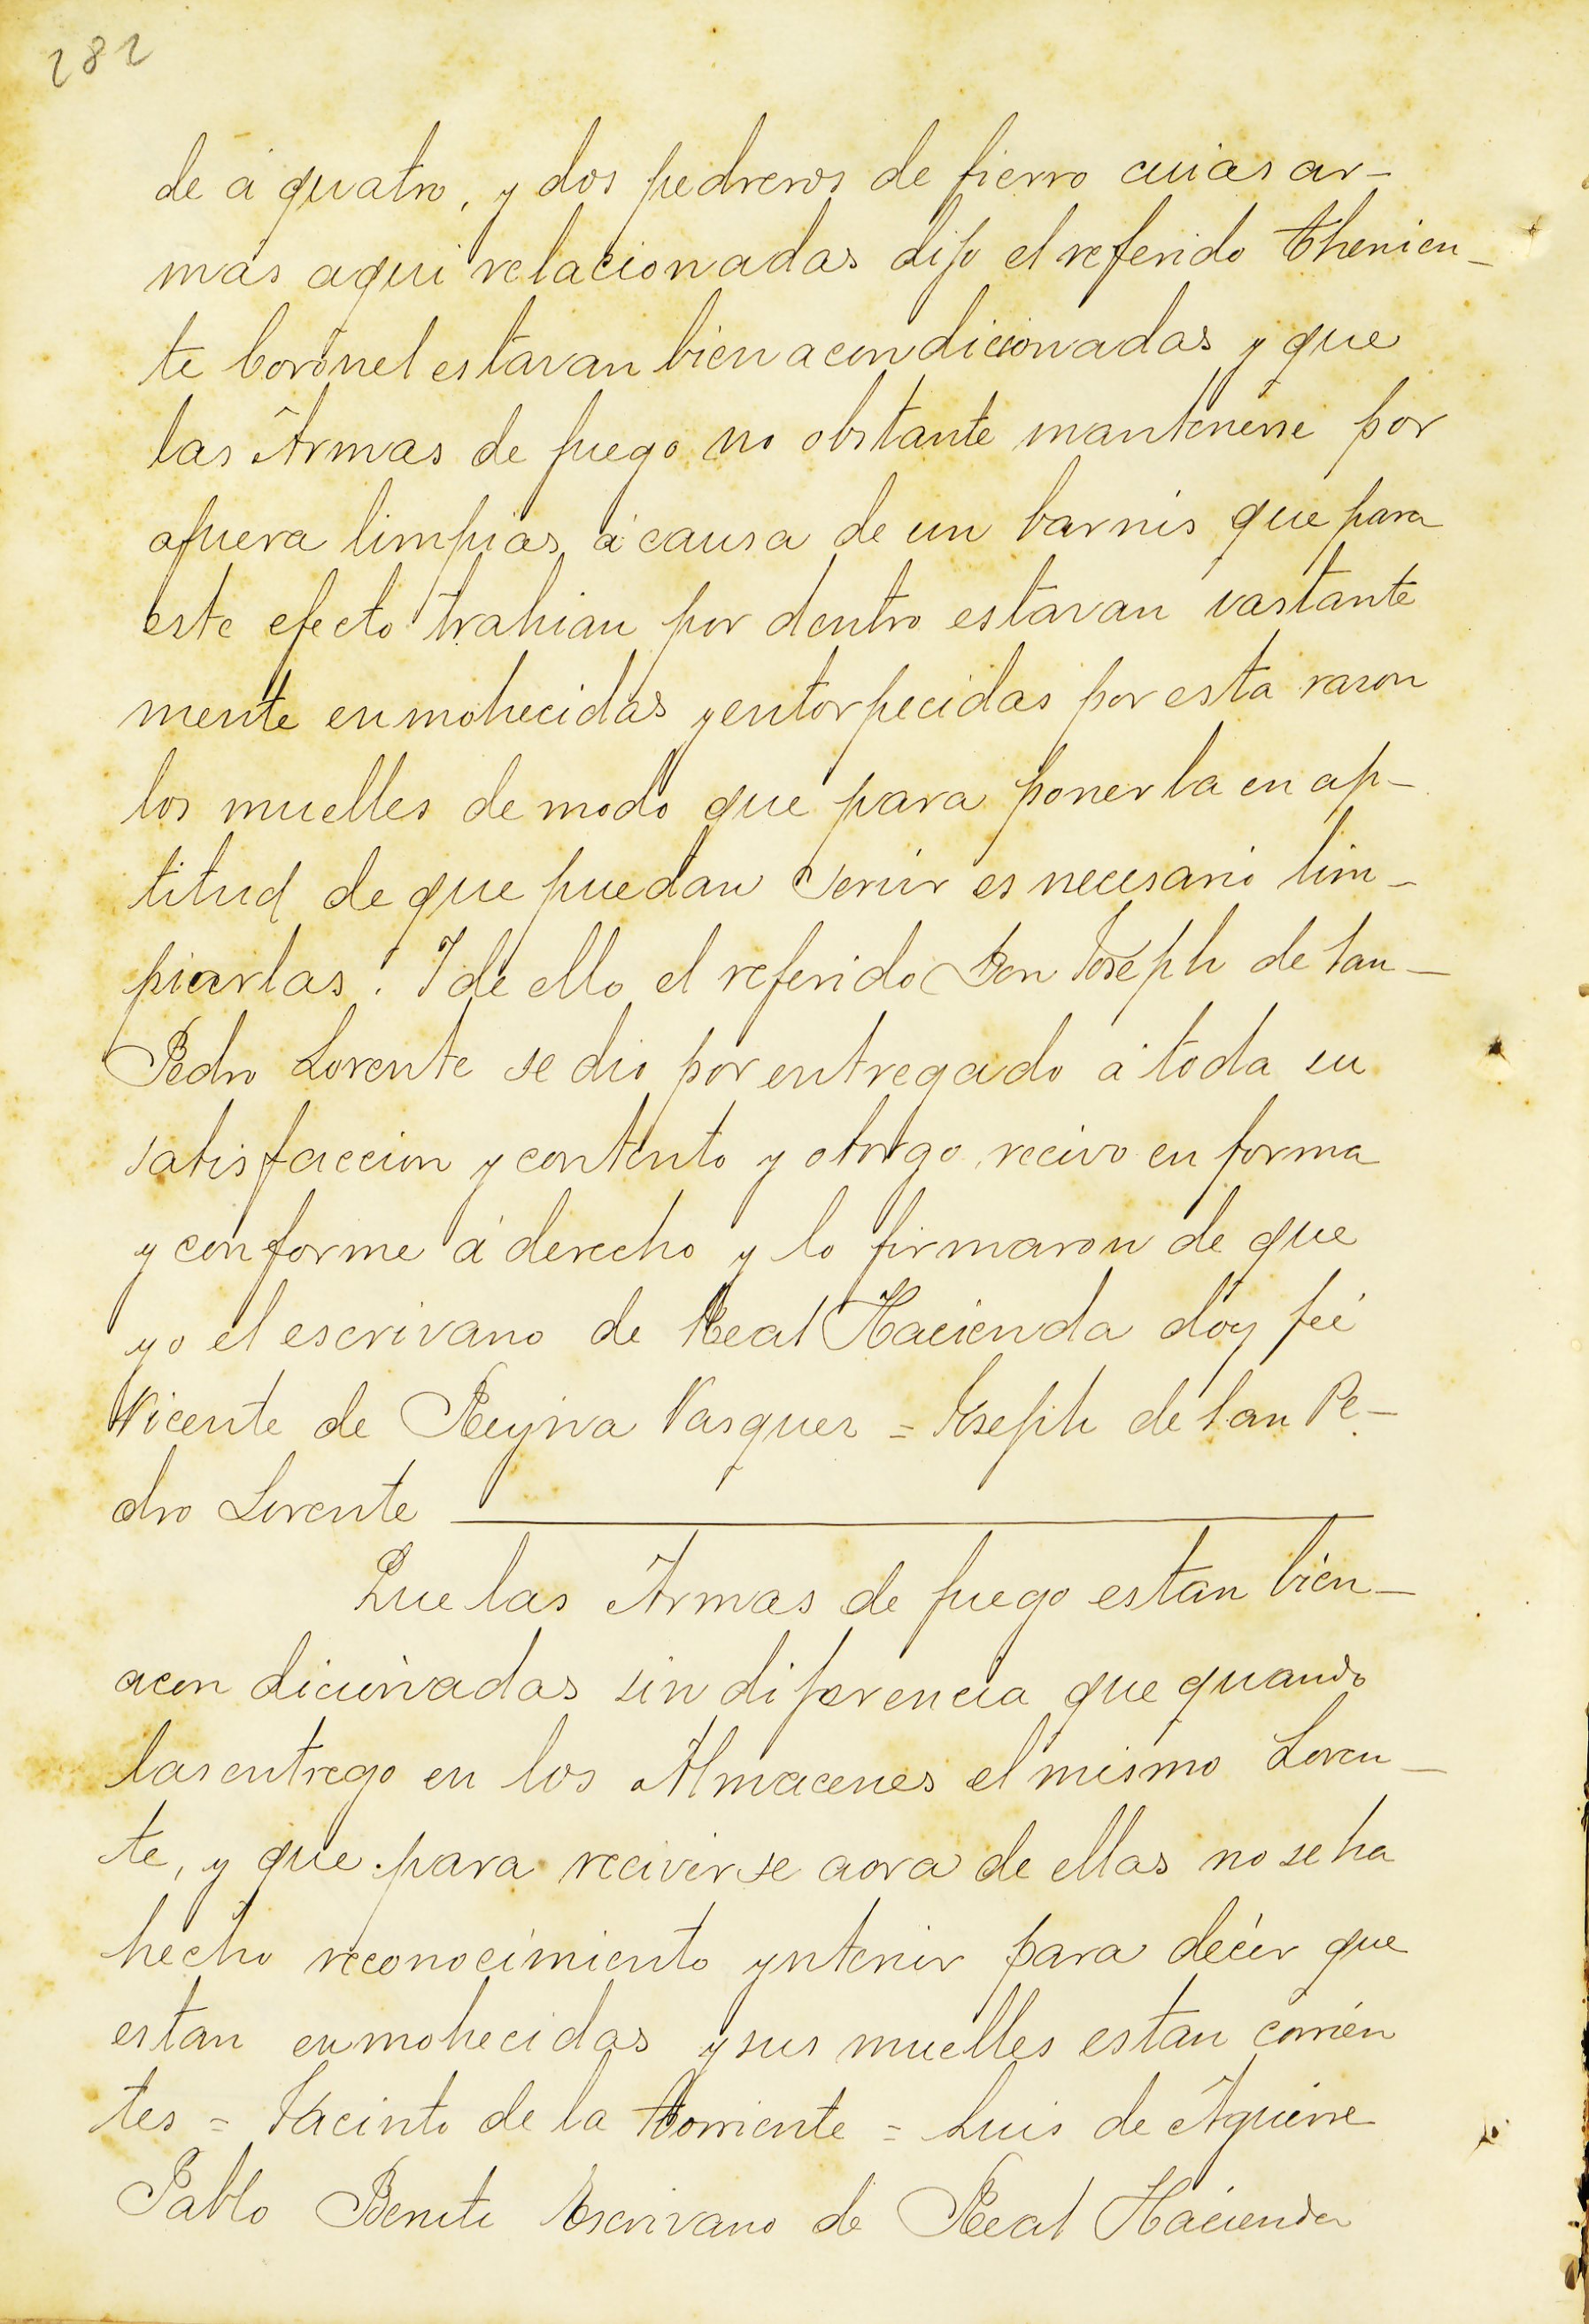 282
de á quatro, y dos pedreros de fierro cuias ar-
mas aqui relacionadas dijo el referido Thenien-
te Coronel estavan bien acondicionadas y que
las Armas de fuego no obstante mantenerse por
afuera limpias á causa de un barnis que para
este efecto trahian por dentro estavan vastante
mente enmohecidas y entorpecidas por esta rason
los muelles de modo que para ponerla en ap-
titud de que puedan servir es necesario lim-
piarlas. I de ello el referido Don Joseph de San-
Pedro Lorente se dio por entregado á toda su
satisfaccion y contento y otorgo recivo en forma
y conforme á derecho y lo firmaron de que
yo el escrivano de Real Hacienda doy feé
Vicente de Reyna Vasquez = Joseph de San Pe-
dro Lorente
Que las Armas de fuego estan bien-
acondicionadas sin diferencia que quando
las entrego en los Almacenes el mismo Loren-
te, y que para recivirse aora de ellas no se ha
hecho reconocimiento ynterior para décir que
estan enmohecidas y sus muelles estan corrien
tes = Jacinto de la Corriente = Luis de Aguirre
Pablo Benite Escrivano de Real Hacienda